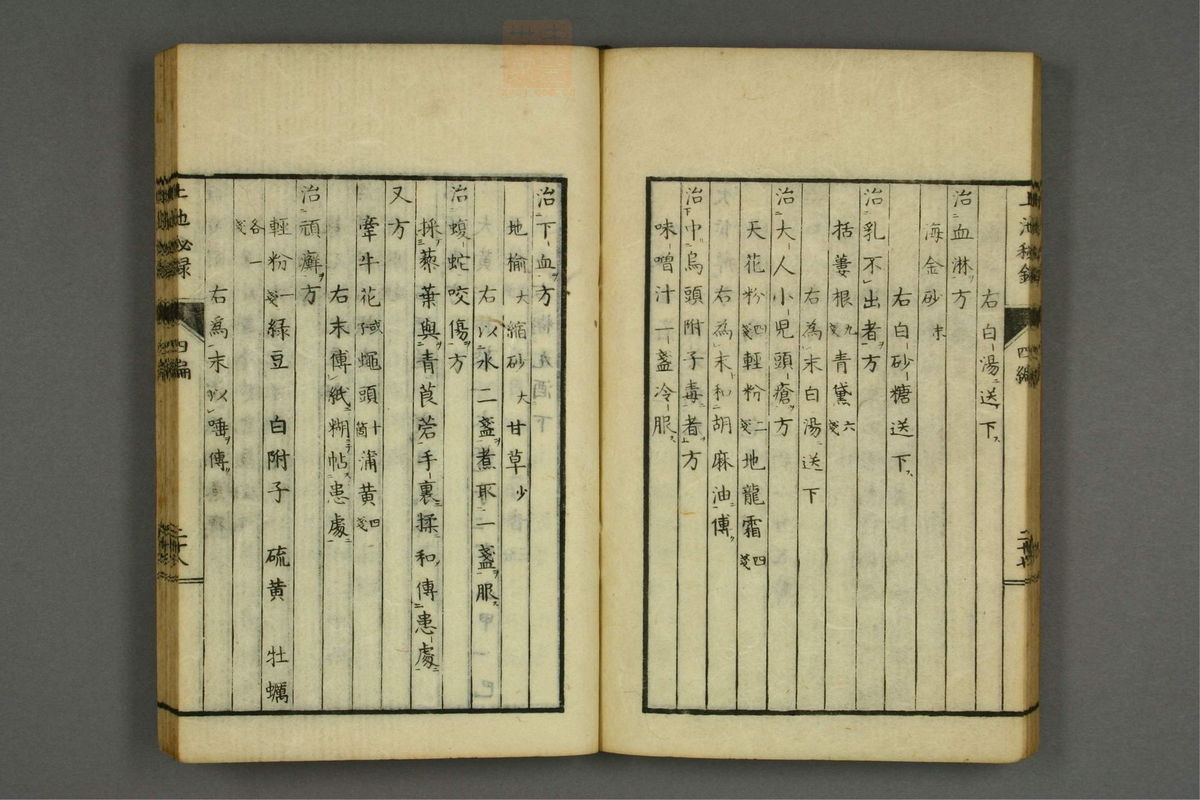 右白湯送下
治血淋方
海金砂末
右白砂糖送下
治乳不出者方
括蔞根九戔青黛六戔
右為末白湯送下
治大人小児頭瘡方
天花粉四戔輕粉二戔地龍霜四戔
右為末和胡麻油傳
治中烏頭附子毒者方
味噌汁一盞冷服
四編
治下血方
地榆大縮砂大甘草少
右以水二盞煮取一盞服
治蝮蛇咬傷方
採藜葉與青莨菪手裏揉和傳患處
又方
牽牛花或子蠅頭十箇蒲黄四戔
右末傳紙糊帖患處
治頑癬方
輕粉一戔緑豆 白附子 硫黄 牡蠣
各一戔
右爲末以唾傳
四編
二十八